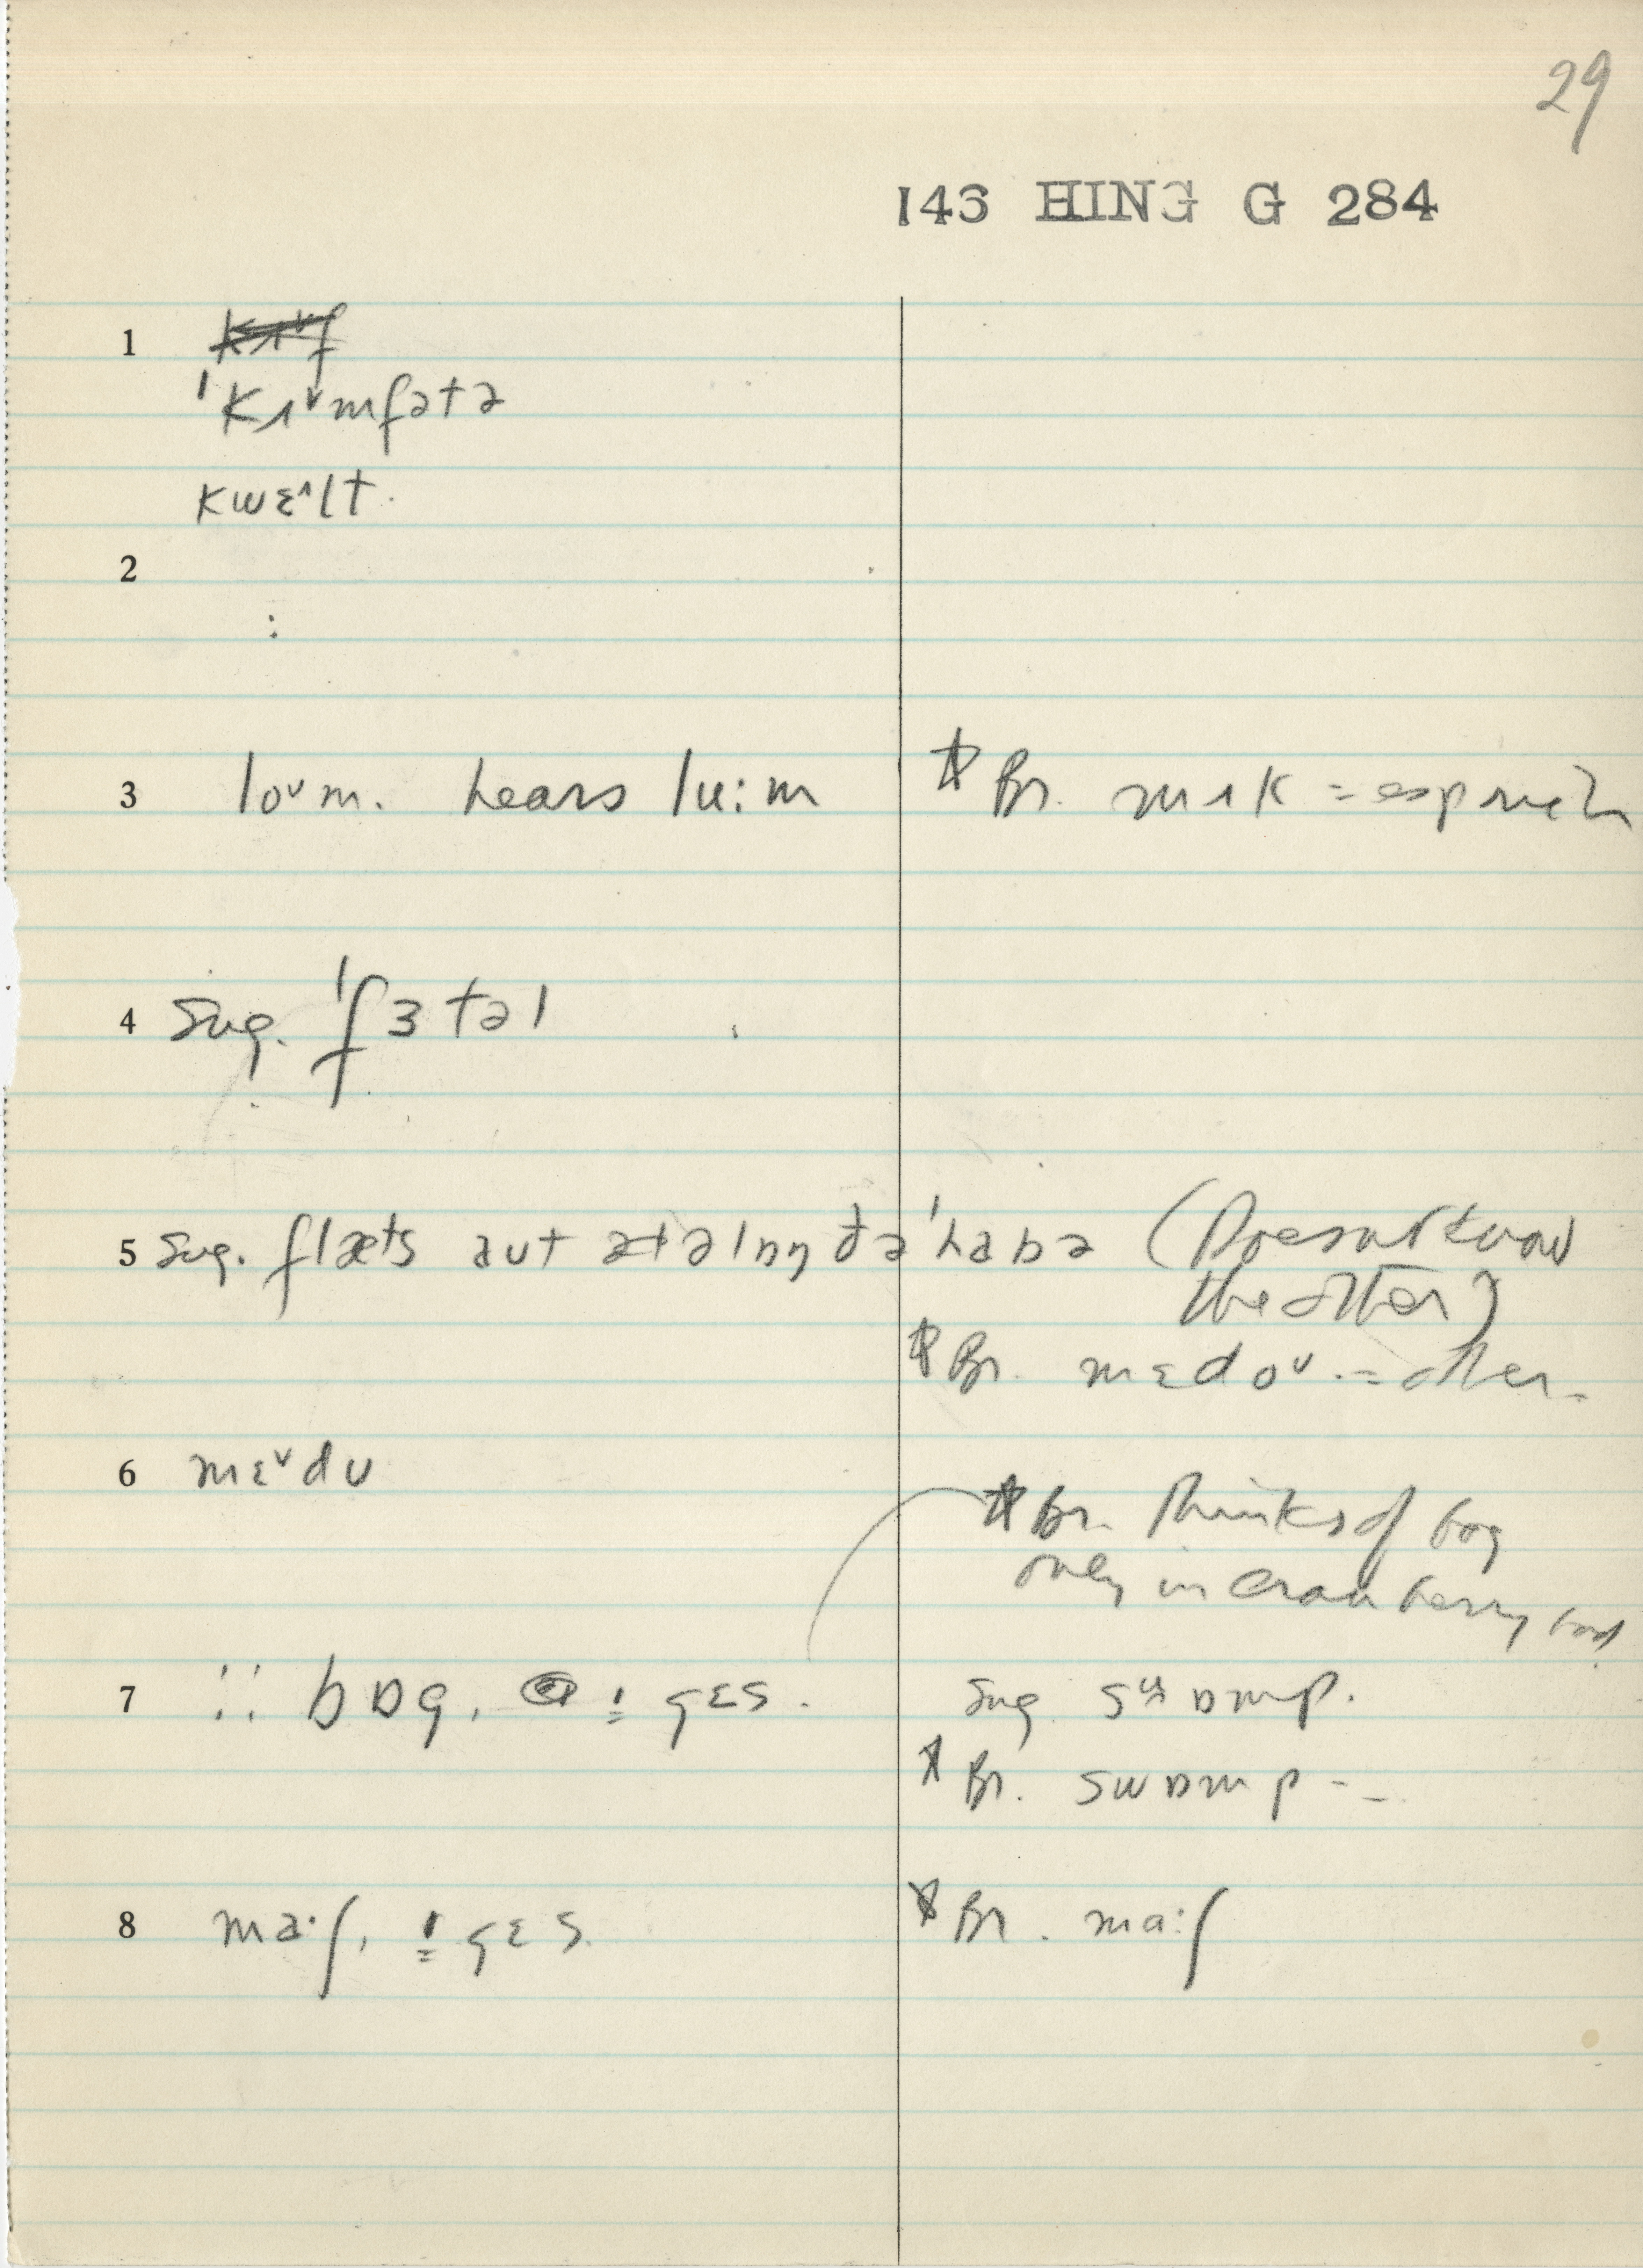 29
143 HING G 284
1
ˈkɪ˅mfətə
kwɛ^lt.
2
:
3 loᵛm. hears lu:m ☆ Br. mɪk = esp rich
4 Sug. ˈfɜtəl
5 Sug. flæts aut ətəlɒŋ ðəˈhabə (Doesn't know
the other)
☆ Br. mɛdoᵛ. = other.
6 mɛ˅dʊ
☆ Br. thinks of bog
only in cranberry bog
7 bɒg. ! gɛs. Sug swɒmp.
☆ Br. swɒmp - -
8 ma·ʃ, ! gɛs. ☆ Br. ma:ʃ